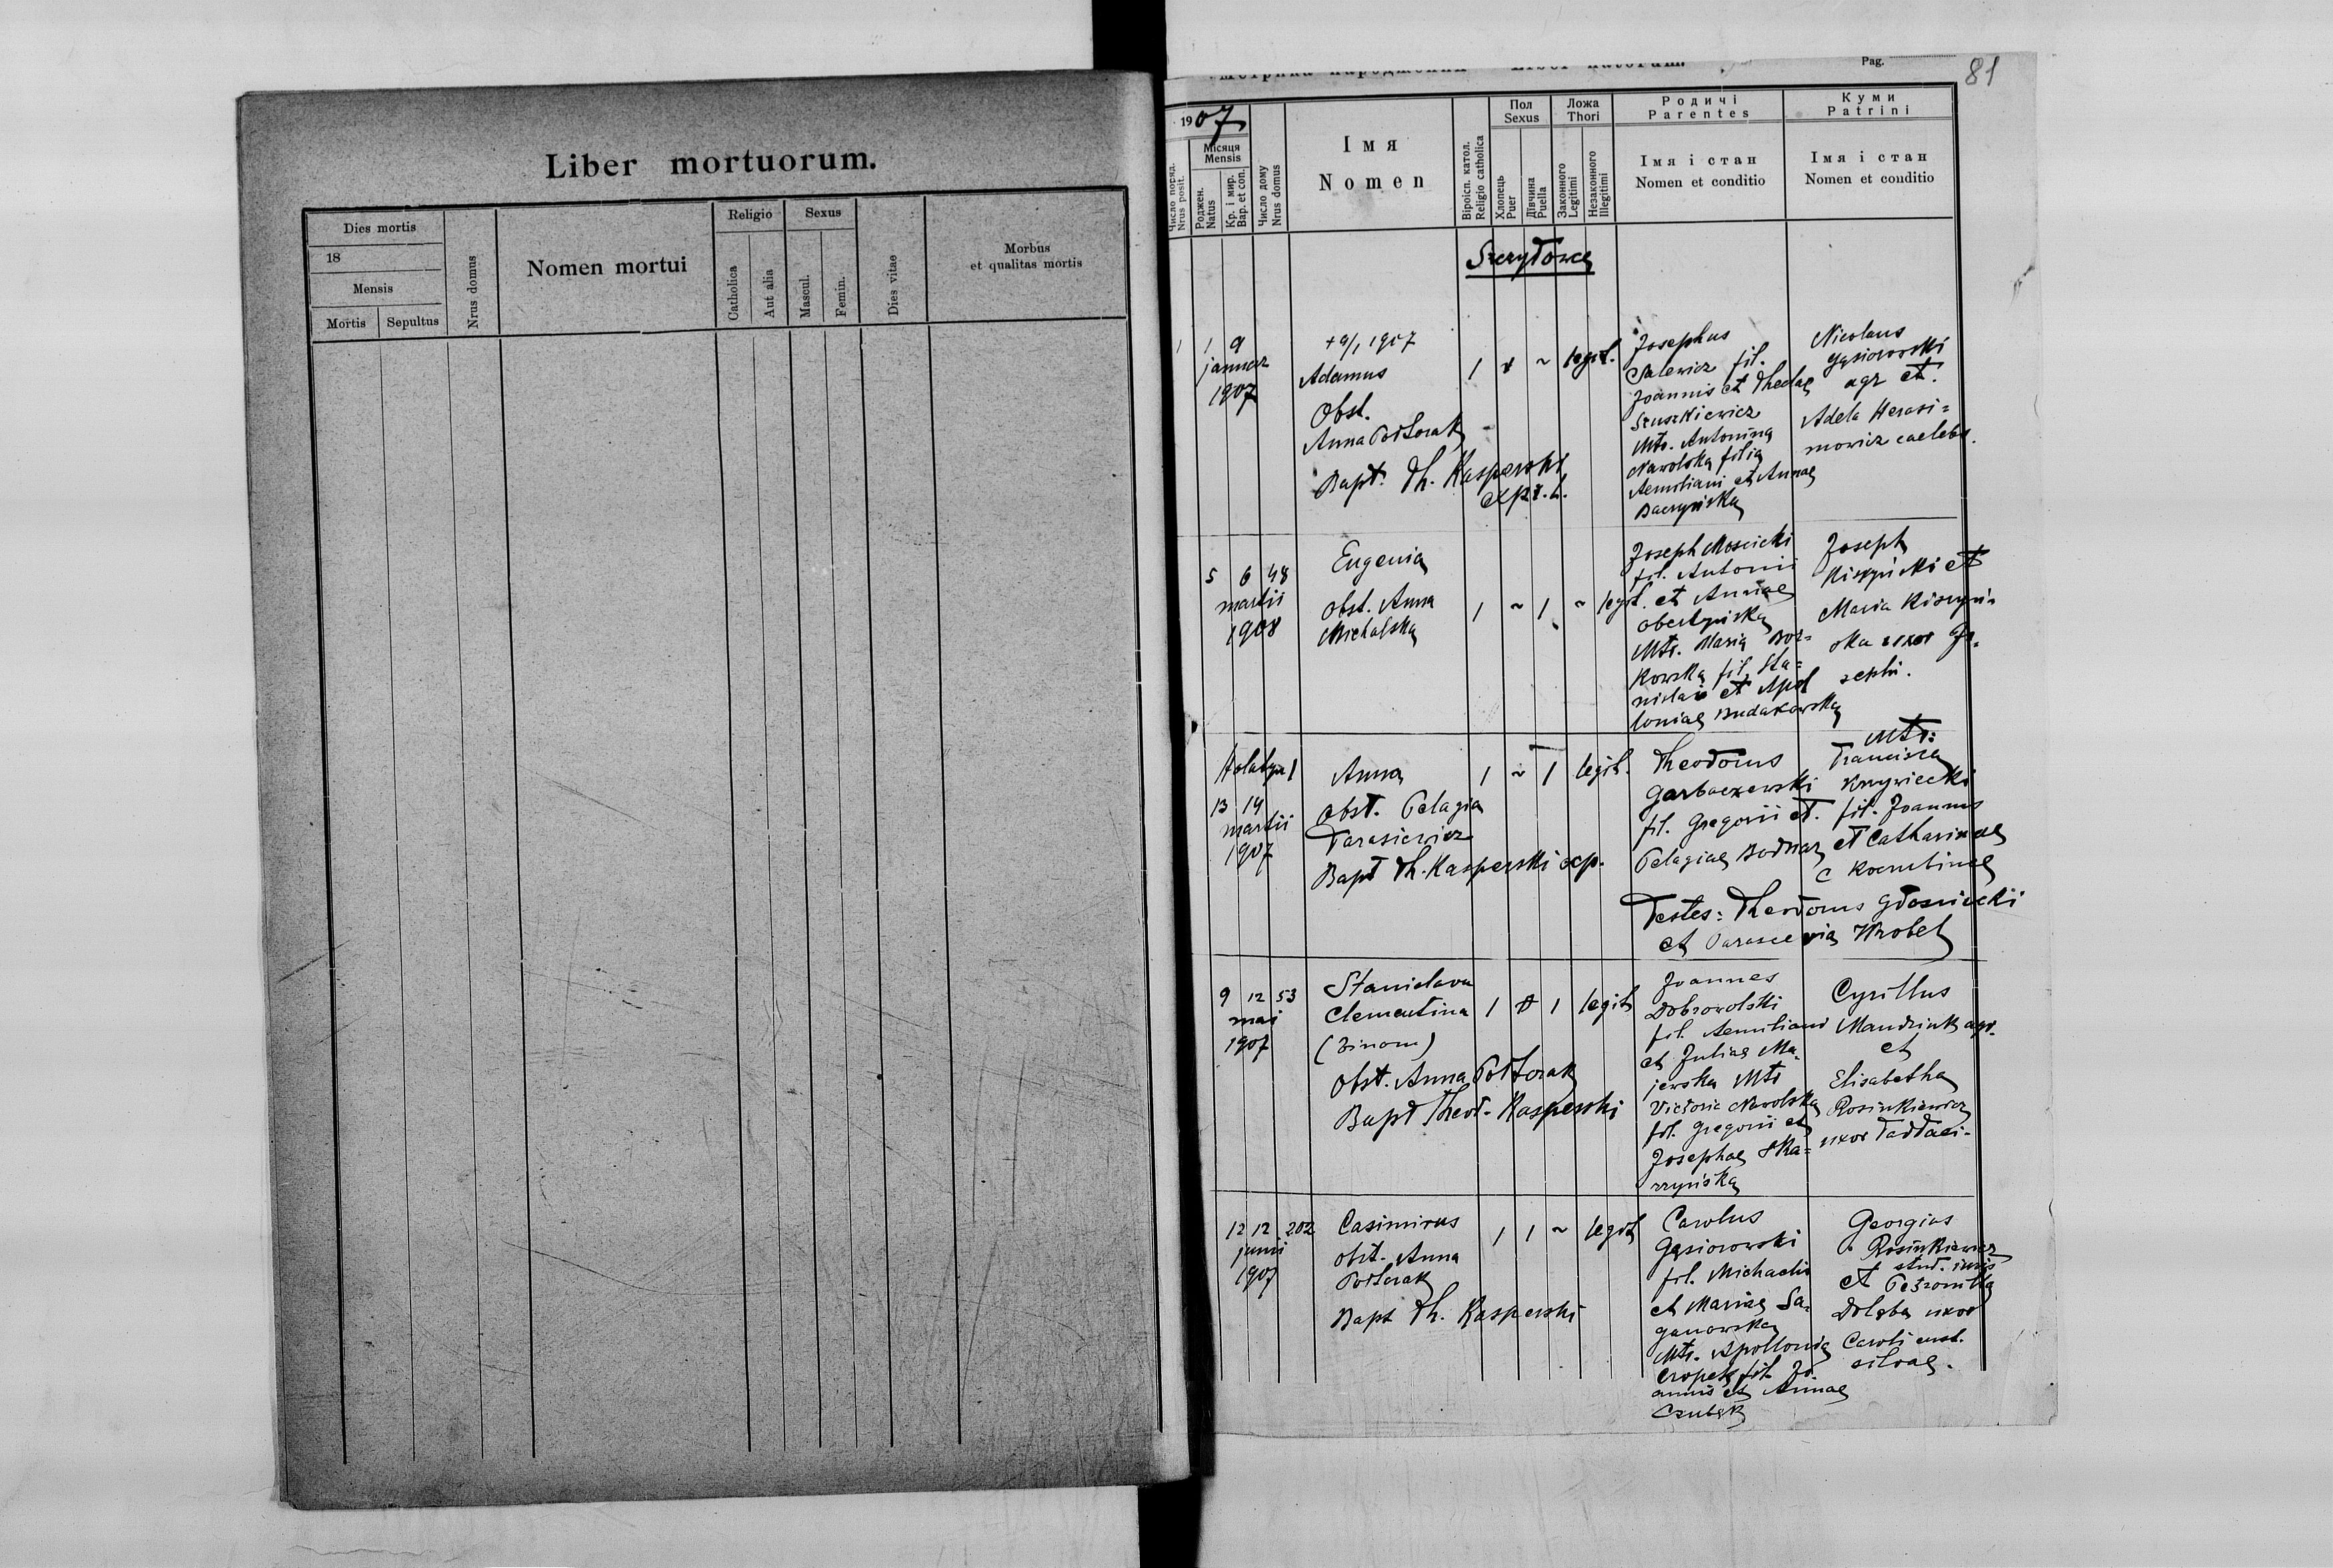 Liber mortuorum.
Dies mortis
18
Mensis
Mortis
Sepultus
Nrus domus
Nomen mortui
Religio
Catholica
Aut alia
Sexus
Mascul.
Femin.
Dies vitae
Morbus
et qualitas mortis
Pag.
81
1907
Число поряд.
Nrus posit.
Місяця
Mensis
Роджен.
Natus
Кр. і мир.
Bap. et con.
Число дому
Nrus domus
Імя
Nomen
Віроісп. катол.
Religio catholica
Пол
Sexus
Хлопець
Puer
Дівчина
Puella
Ложа
Thori
Законного
Legitimi
Незаконного
Illegitimi
Родичі
Parentes
Імя і стан
Nomen et conditio
Куми
Patrini
Імя і стан
Nomen et conditio
1 9
januar
1907
+9/1 1907
Adamus
Obst.
Anna Połtorak
Bapt. Th. Kasperski
1 ~ legit.
Josephus
fil.
Joannis et Theclae
Szuszkiewicz
Mtr. Antonina
Nawolska filia
Aemiliani et Annae
Baczyńska
Nicolaus
Gąsiorowski
agr et.
Adela Herasi=
mowicz caelebs.
5 6 48
martii
1908
Eugenia
Obst. Anna
Michalska
1 ~ 1 ~ legit.
Joseph Mościcki
fil. Antonii
et Annae
Obertyńska
Mtr. Maria Bor=
kowska fil. Sta=
nislai et Apol
loniae Budakowska
Joseph
et
Maria
ska uxor Jo=
sephi.
13 14
martii
1907
Anna
Obst. Pelagia
Tarasiewicz
Bapt Th. Kasperski exp.
1 ~ 1 legit.
Theodorus
Garbaczewski
fil. Gregorii et.
Pelagiae Bodnar
Mtr:
Francisca
Krzywiecki
fil. Joannis
et Catharinae
Testes: Theodorus
et Parascevia Wrobel
9 12 53
mai
1907
Stanislava
Clementina
(binom)
Obst. Anna Połtorak
Bapt Theod. Kasperski
1 1 legit
Joannes
Dobrowolski
fil. Aemiliani
et Juliae Ma=
jewska Mtr
Victoria Nawolska
fil. Gregorii et
Josephae Ska=
rzyńska
Cyrillus
Mandziuk agr.
et
Elisabetha
Rosinkiewicz
uxor Taddaei.
12 12 202
junii
1907
Casimirus
Obst. Anna
Połtorak
Bapt Th. Kasperski
1 1 ~ legit
Carolus
Gąsiorowski
fil. Michaelis
et Mariae Sa=
ganowska
Mtr. Apollonia
Czopek fil. Jo
annis et Annae
Czubak
Georgius
Rosinkiewicz
stud. iuris
et Petronilla
Dołęba uxor
Caroli cust.
silvae.